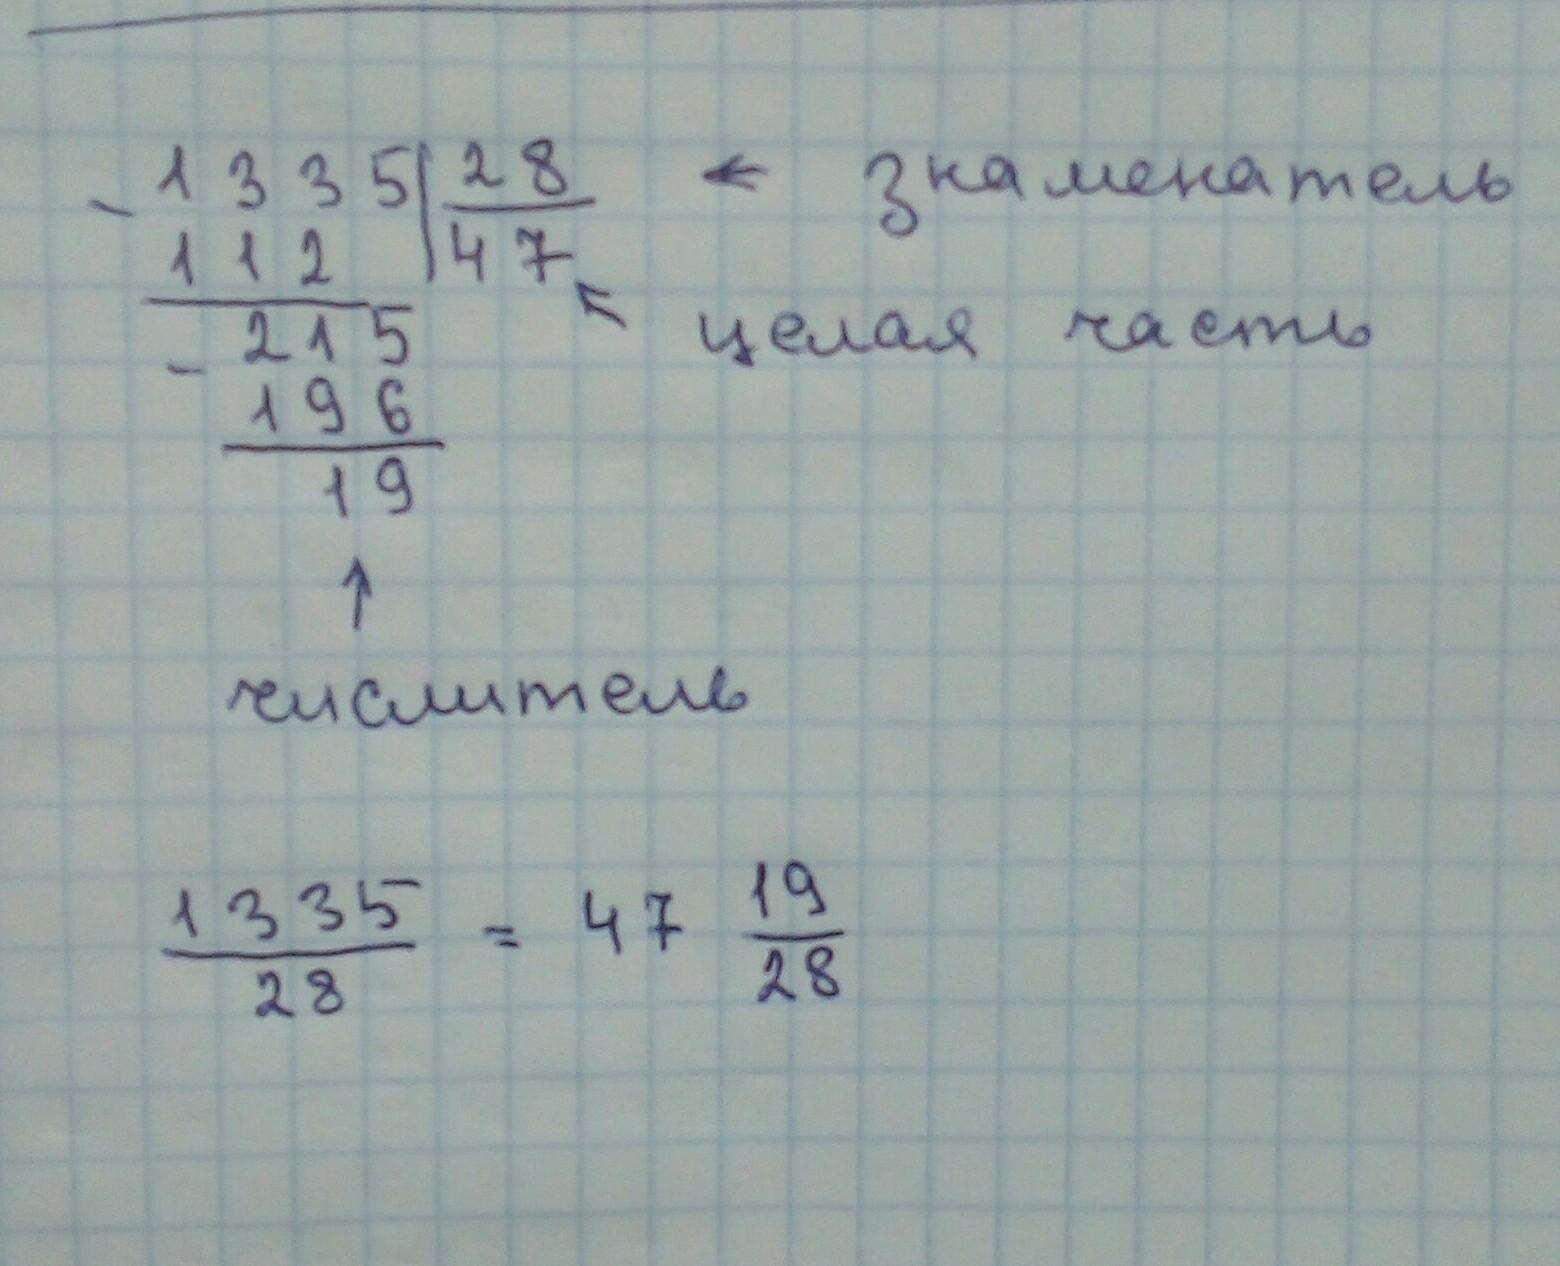 - 1335 | 28 ← знаменатель
112 | 47 ↖ целая часть
- 215
196
19
↑
числитель
1335/28 = 47 19/28